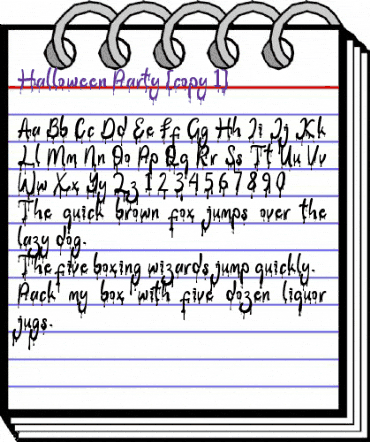 Halloween Party [copy 1]
Aa Bb Cc Dd Ee Ff Gg Hh Ii Jj Kk
Ll Mm Nn Oo Pp Qq Rr Ss Tt Uu Vv
Ww Xx Yy Zz 1 2 3 4 5 6 7 8 9 0
The quick brown fox jumps over the
lazy dog.
The five boxing wizards jump quickly.
Pack my box with five dozen liquor
jugs.